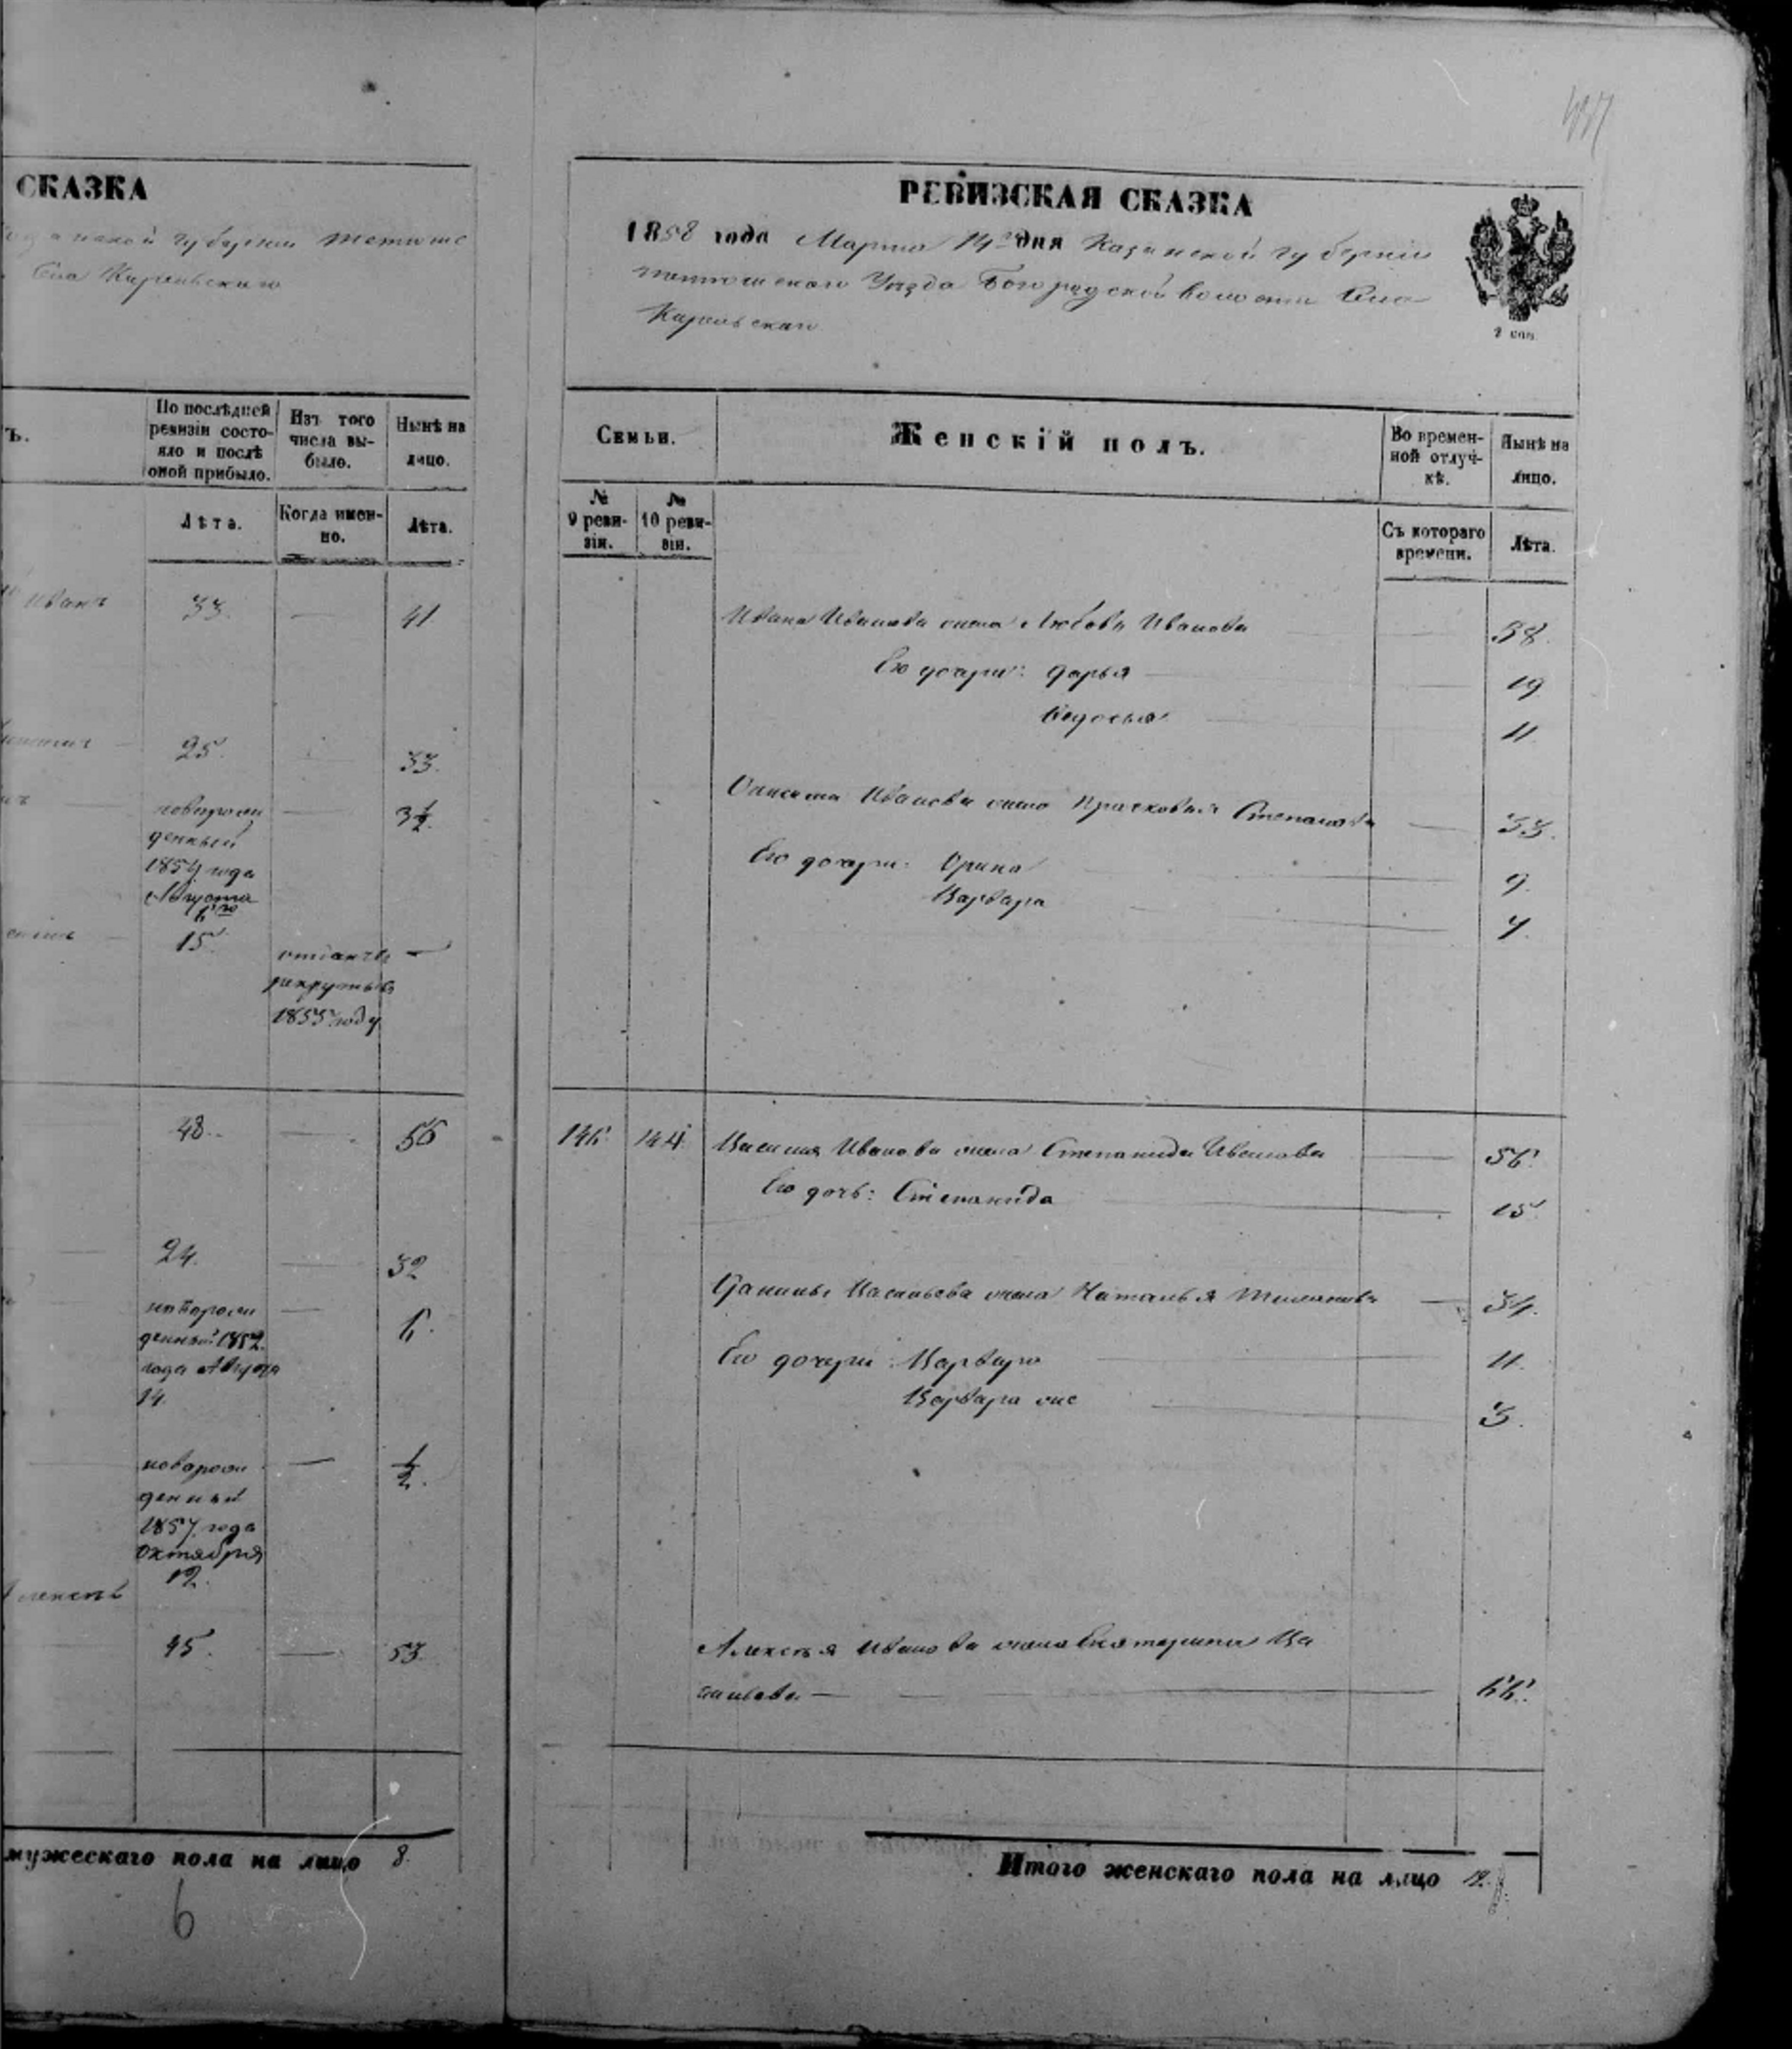 437
СКАЗКА
губернии Тетюшс
Села Кирельскаго
ъ.
По послѣдней
ревизіи состо-
яло и послѣ
оной прибыло.
Изъ того
числа вы-
было.
Нынѣ на
лицо.
Лѣта.
Когда имен-
но.
Лѣта.
Иванъ 33. — 41
25. — 33.
новорож
денный
1854 года
Августа
— 3½.
15. отданъ въ —
рекруты въ
1855 году
48. — 56
24. — 32
новорож
денный 1852
года Августа
14.
— 6.
новорож
денный
1857 года
Октября
12.
— ½.
Алексѣй
45. — 53.
мужескаго пола на лицо 8.
6
РЕВИЗСКАЯ СКАЗКА
1858 года Марта 14го дня Казанской губернии
Тетюшскаго Уезда Богородской волости Села
Кирельскаго
2 коп.
Семьи.
Женскій полъ.
Во времен-
ной отлуч-
кѣ.
Нынѣ на
лицо.
№
9 реви-
зіи.
№
10 реви-
зіи.
Съ котораго
времени.
Лѣта.
Ивана Иванова жена Любовь Иванова — 38.
Его дочери: Дарья — 19
Федосья — 11
Иванова жена Прасковья Степанова — 33.
Его дочери: Орина — 9.
Варвара — 7.
146. 144. Василья Иванова жена Степанида Иванова — 56.
Его дочь: Степанида — 15.
Данилы Васильева жена Наталья — 34.
Его дочери: Варвара — 11.
Варвара же — 3.
Алексѣя Иванова жена Екатерина Ва
сильева — — — 66.
Итого женскаго пола на лицо 12.